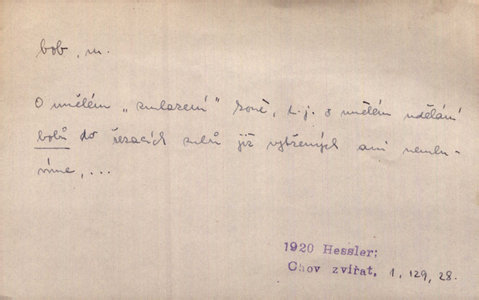 bob, m.
O umělém „zmlazení" koně, t.j. o umělém udělání
bobů do řezacích zubů již vytřených ani nemlu-
víme,...
1920 Hessler:
Chov zvířat. 1, 129, 28.